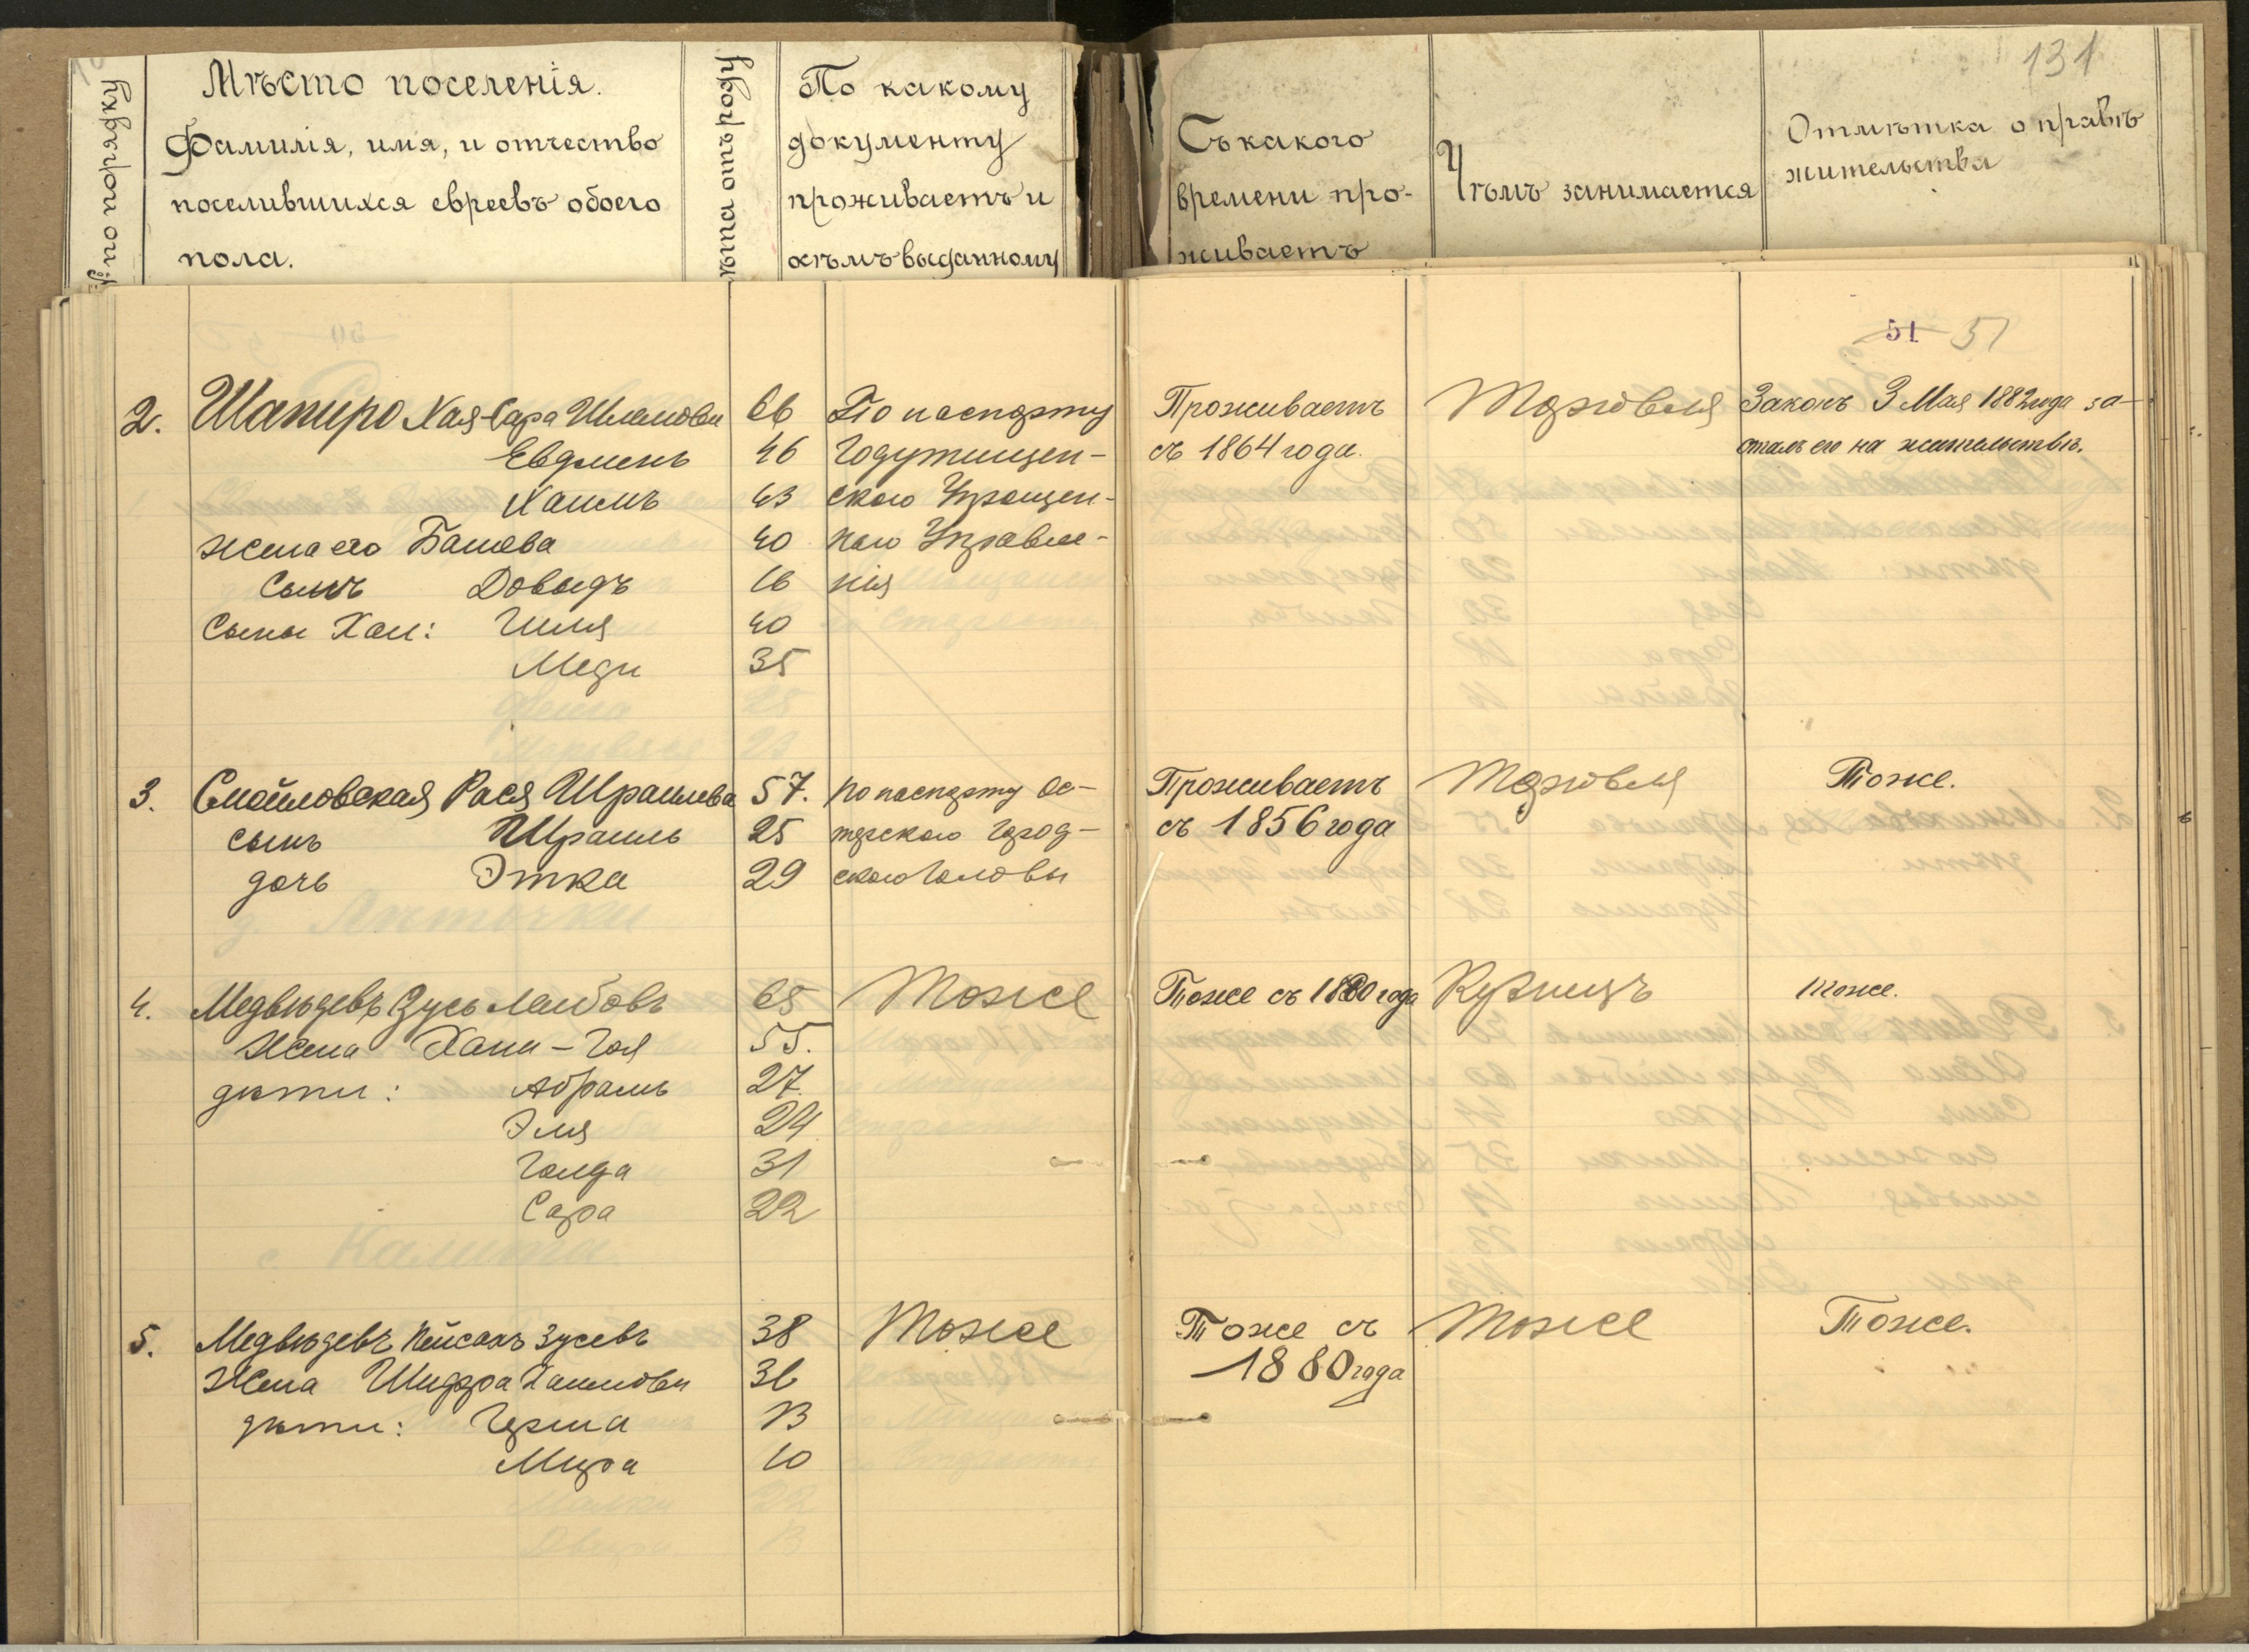 131
№ по порядку
Мѣсто поселенія.
Фамилія, имя, и отчество
поселившихся евреевъ обоего
пола.
лѣта отъ роду
По какому
документу
проживаетъ и
кѣмъ выданному
Съ какого
времени про-
живаетъ
Чѣмъ занимается
Отмѣтка о правѣ
жительства
51 51
2. Шапиро Хая-Сара Шлемова 66 По паспорту Проживаетъ Торговля Законъ 3 Мая 1882 года за-
46 съ 1864 года. сталъ его на жительствѣ.
Хаимъ 43 скаго
жена его Башева 40 наго Управле-
Сынъ Довыдъ 16 нія
Сыны Хаи: Гиля 40
35
3. Рася Шраилева 57. по паспорту Ос- Проживаетъ Торговля Тоже.
сынъ Шраиль 25 терского Город- съ 1856 года
дочь Этка 29 ского Головы
4. Медвѣдевъ Зусь Лейбовъ 65 Тоже Тоже съ 1880 года Кузнецъ тоже.
Жена Хана-Гоя 55.
дѣти: Абрамъ 27.
Эля 24
Голда 31
Сара 22
5. Медвѣдевъ Пейсахъ Зусевъ 38 Тоже Тоже съ Тоже Тоже.
Жена Шифра Хаимова 36 1880 года
дѣти: Герша 13
Мира 10